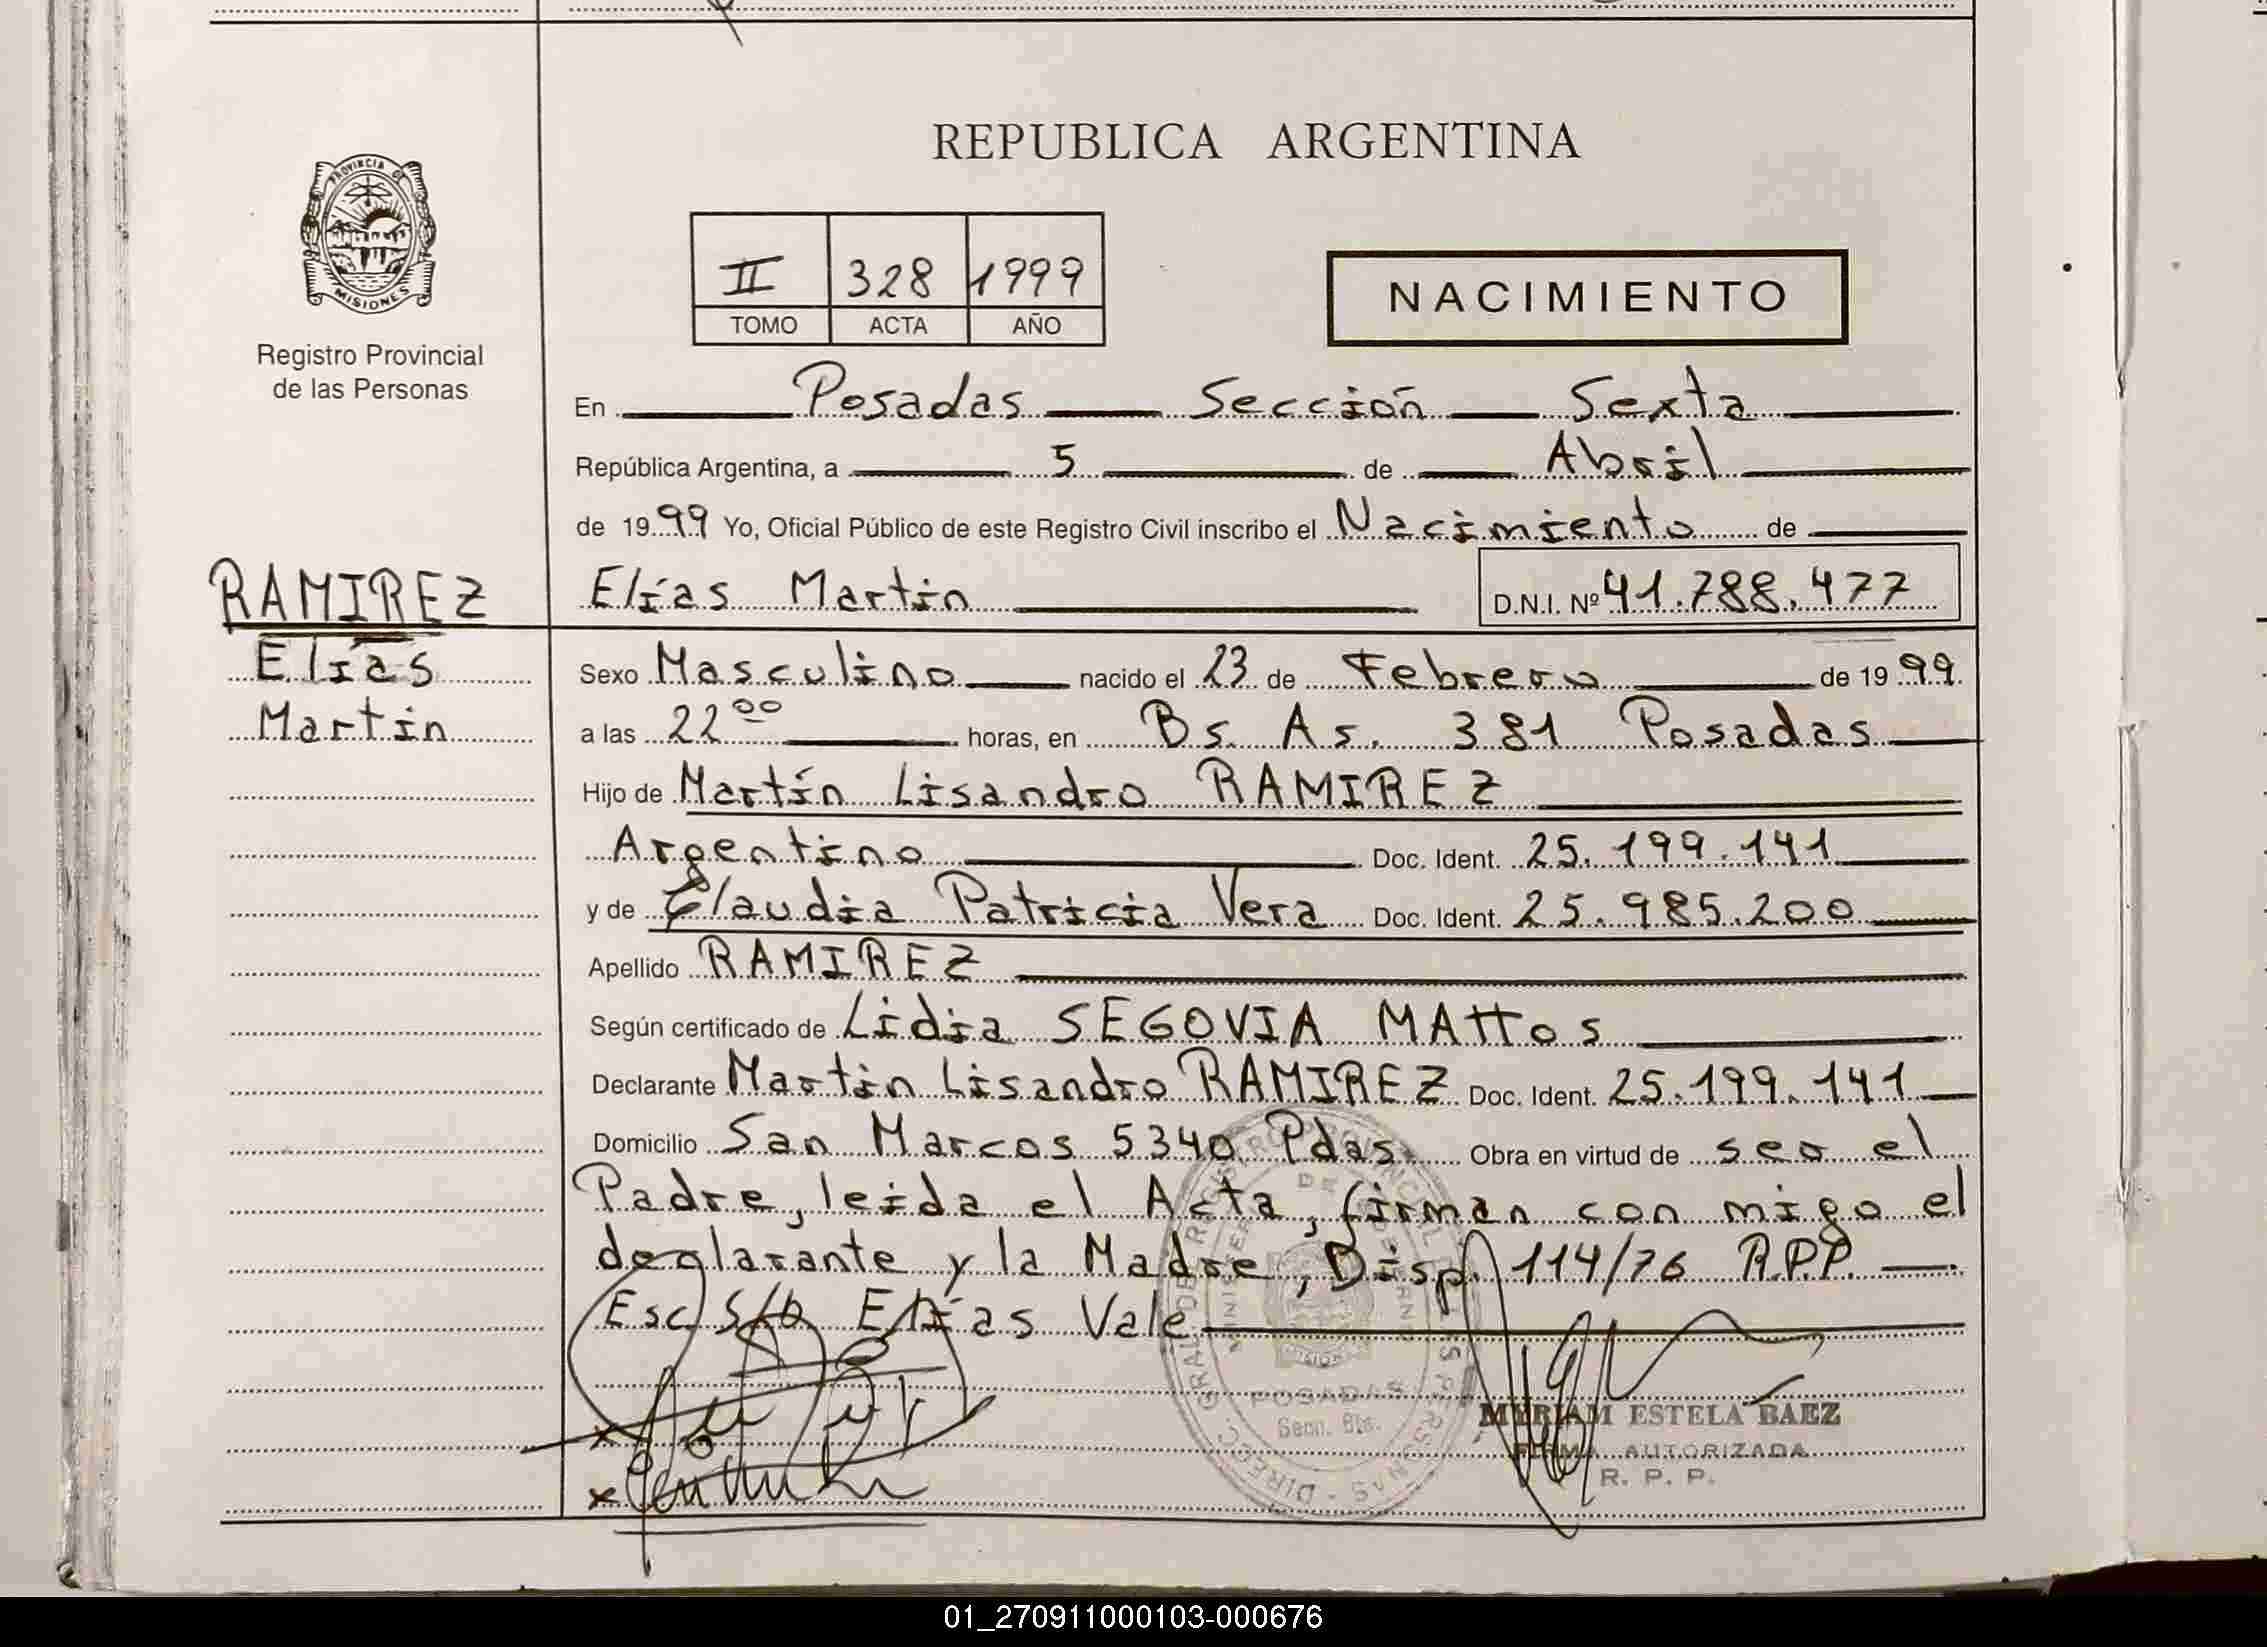 REPUBLICA ARGENTINA
PROVINCIA DE
MISIONES
Registro Provincial
de las Personas
II 328 1999
TOMO ACTA AÑO
NACIMIENTO
En Posadas Sección Sexta
República Argentina, a 5 de Abril
de 1999 Yo, Oficial Público de este Registro Civil inscribo el Nacimiento de
RAMIREZ
Elías
Martin
Elías Martin D.N.I. Nº 41.788.477
Sexo Masculino nacido el 23 de Febrero de 1999
a las 22 00 horas, en Bs. As. 381 Posadas
Hijo de Martín Lisandro RAMIREZ
Argentino Doc. Ident. 25.199.141
y de Claudia Patricia Vera Doc. Ident. 25.985.200
Apellido RAMIREZ
Según certificado de Lidia SEGOVIA MATTOS
Declarante Martin Lisandro RAMIREZ Doc. Ident. 25.199.141
Domicilio San Marcos 5340 Pdas Obra en virtud de ser el
Padre, leida el Acta, firman con migo el
declarante y la Madre, Disp. 114/76 R.P.P.
Esc S/b Elías Vale
POSADAS
Secc. 6ta.
MYRIAM ESTELA BAEZ
FIRMA AUTORIZADA
R. P. P.
01_270911000103-000676